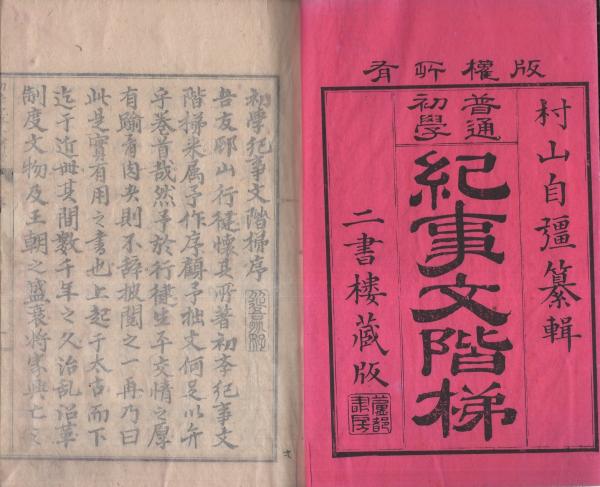 版權所有
村山自彊纂輯
普通
初學
紀事文階梯
二書樓藏版
初學紀事文階梯序
吾友邨山行健懷其所著初學紀事文
階梯來属予作序顧予拙文何足以弁
乎卷首哉然予於行健生平交情之厚
有踰骨肉矣則不辞披閲之一再乃曰
此是實有用之書也上起于太古而下
迄于近世其間數千年之久治乱沿革
制度文物及王朝之盛衰将家興亡